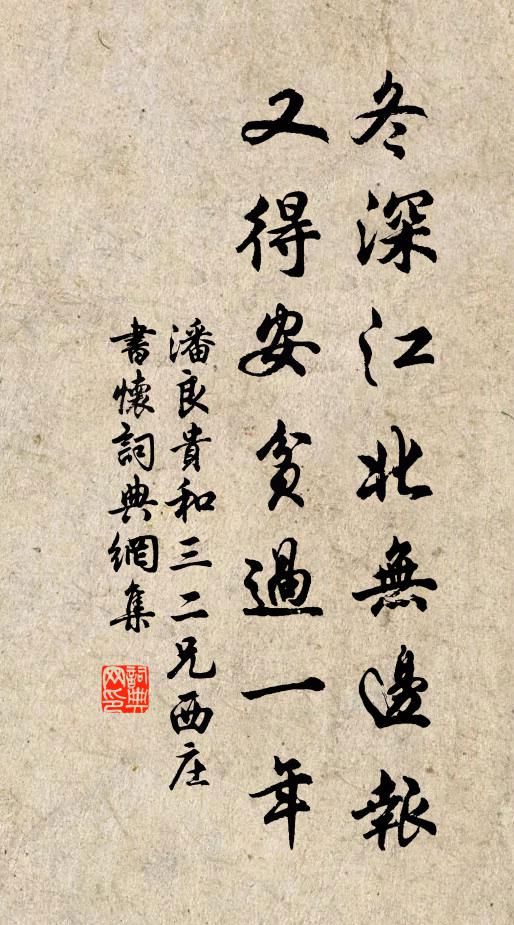 冬深江北無邊報
又得安貧過一年
潘良貴和三二兄西庄
書懷詞典網集
詞典网印